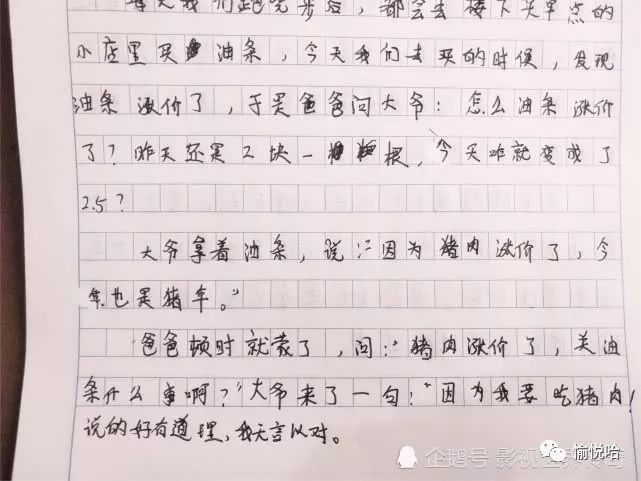 每天我们跑完步后，都会去楼下买早点的
小店里买油条，今天我们去买的时候，发现
油条涨价了，于是爸爸问大爷：怎么油条涨价
了？昨天还是2块一根，今天咋就变成了
2.5？
大爷拿着油条，说："因为猪肉涨价了，今
年也是猪年。"
爸爸顿时就蒙了，问："猪肉涨价了，关油
条什么事啊？"大爷来了一句："因为我要吃猪肉！
说的好有道理，我无言以对。
企鹅号 影视
愉悦哈